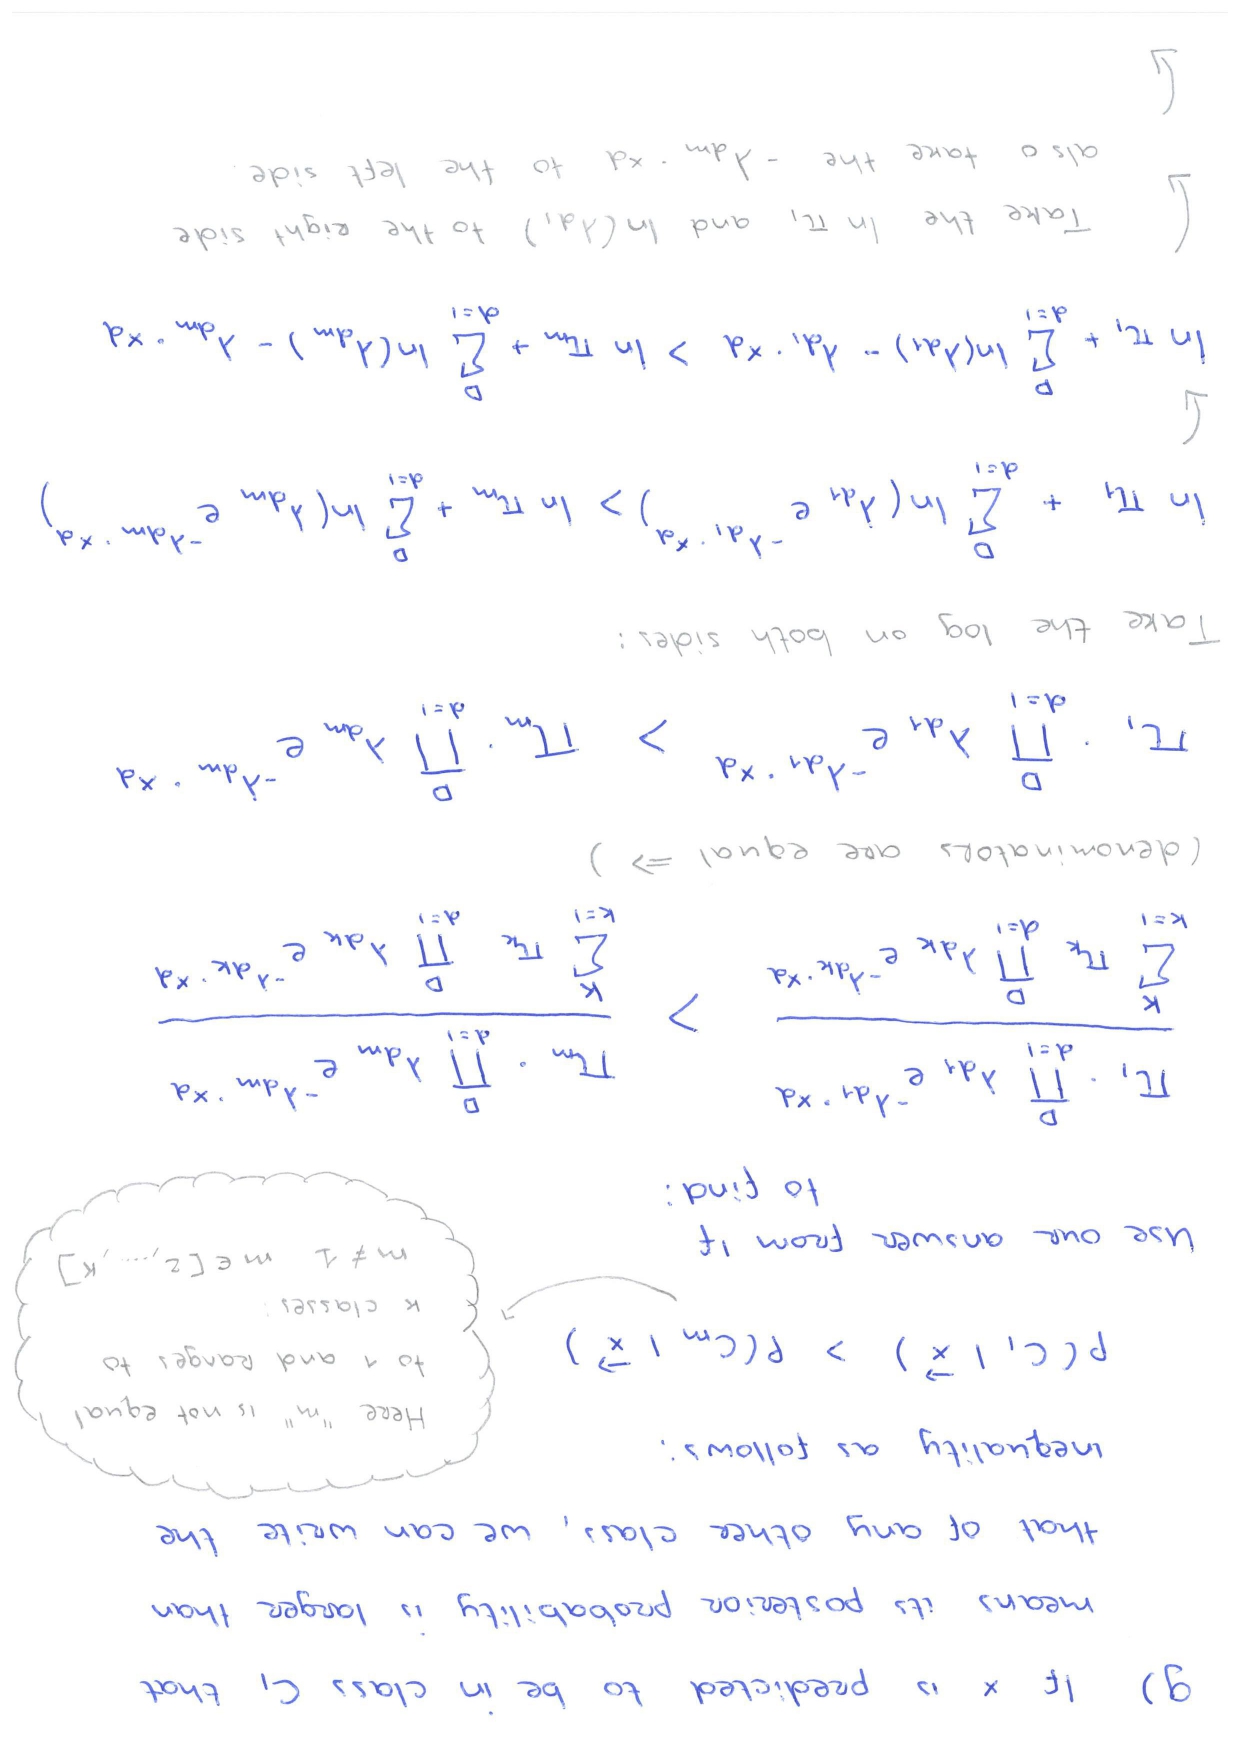 g) If x is predicted to be in class C₁ that
means its posterior probability is larger than
that of any other class, we can write the
inequality as follows:
p(C₁ | x⃗) > p(Cₘ | x⃗)
Here "m" is not equal
to 1 and ranges to
K classes:
m ≠ 1 m ∈ [2, ..., K]
Use our answer from 1f
to find:
\frac{π_1 · ∏_{d=1}^{D} λ_{d1} e^{-λ_{d1} · x_d}}{∑_{k=1}^{K} π_k ∏_{d=1}^{D} λ_{dk} e^{-λ_{dk} · x_d}} > \frac{π_m · ∏_{d=1}^{D} λ_{dm} e^{-λ_{dm} · x_d}}{∑_{k=1}^{K} π_k ∏_{d=1}^{D} λ_{dk} e^{-λ_{dk} · x_d}}
(denominators are equal => )
π_1 · ∏_{d=1}^{D} λ_{d1} e^{-λ_{d1} · x_d} > π_m · ∏_{d=1}^{D} λ_{dm} e^{-λ_{dm} · x_d}
Take the log on both sides:
ln π_1 + ∑_{d=1}^{D} ln(λ_{d1} e^{-λ_{d1} · x_d}) > ln π_m + ∑_{d=1}^{D} ln(λ_{dm} e^{-λ_{dm} · x_d})
ln π_1 + ∑_{d=1}^{D} ln(λ_{d1}) - λ_{d1} · x_d > ln π_m + ∑_{d=1}^{D} ln(λ_{dm}) - λ_{dm} · x_d
Take the ln π_1 and ln(λ_{d1}) to the right side
also take the -λ_{dm} · x_d to the left side.